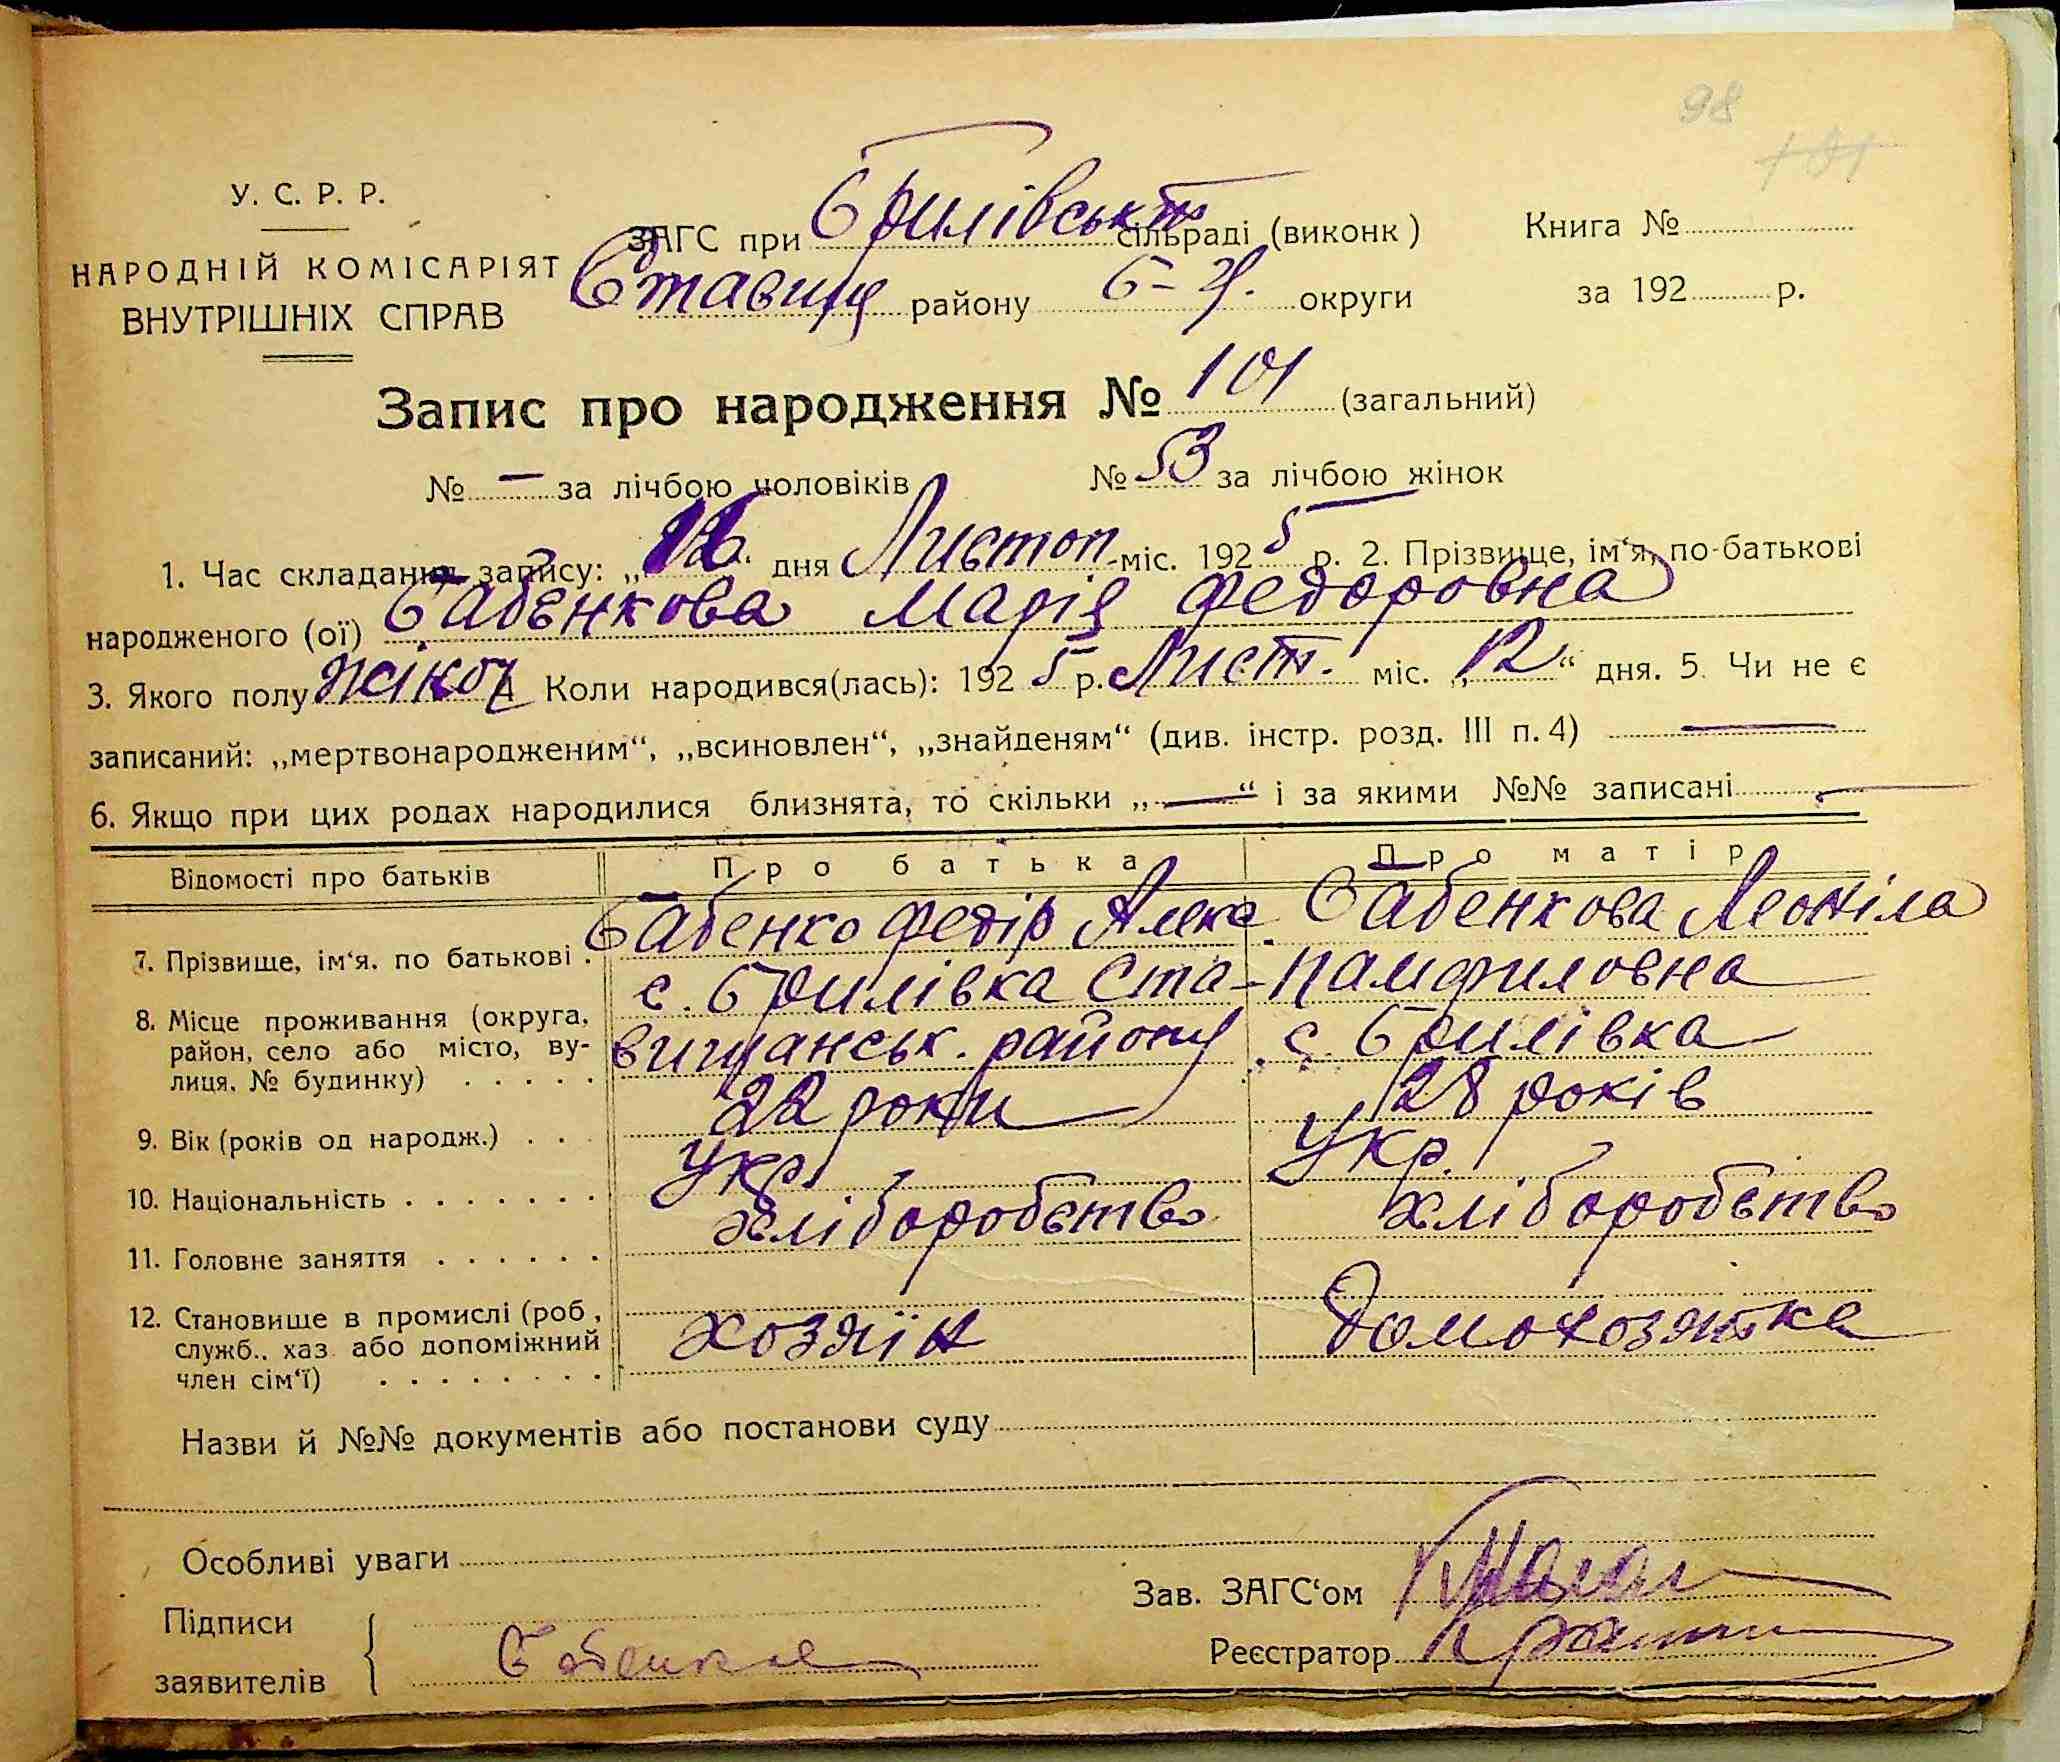 98
101
У. С. Р. Р.
НАРОДНІЙ КОМІСАРІЯТ
ВНУТРІШНІХ СПРАВ
ЗАГС при Брилівськ сільраді (виконк)
Ставищ району Б-Ц. округи
Книга №
за 192 р.
Запис про народження № 101 (загальний)
№ — за лічбою чоловіків № 53 за лічбою жінок
1. Час складання запису: „ “ дня Листоп міс. 1925 р. 2. Прізвище, ім‘я, по-батькові
народженого (ої) Бабенкова Марія Федоровна
3. Якого полу жіноч 4 Коли народився(лась): 1925 р. Лист. міс. „12“ дня. 5. Чи не є
записаний: „мертвонародженим“, „всиновлен“, „знайденям“ (див. інстр. розд. III п. 4) —
6. Якщо при цих родах народилися близнята, то скільки „—“ і за якими №№ записані —
Відомості про батьків Про батька Про матір
7. Прізвище, ім‘я, по батькові . Бабенко Федір Алекс. Бабенкова Леоніла
Памфиловна
8. Місце проживання (округа, район, село або місто, вулиця, № будинку) . . . . .
с. Брилівка Ста-
вищанськ. району с. Брилівка
9. Вік (років од народж.) . . . 22 роки 28 років
10. Національність . . . . . . . Укр. Укр.
11. Головне заняття . . . . . . хліборобство хліборобство
12. Становище в промислі (роб, служб., хаз. або допоміжний член сім‘ї) . . . . . . . .
хозяїн домохозяйка
Назви й №№ документів або постанови суду
Особливі уваги
Зав. ЗАГС‘ом
Підписи
заявителів Бабенко
Реєстратор